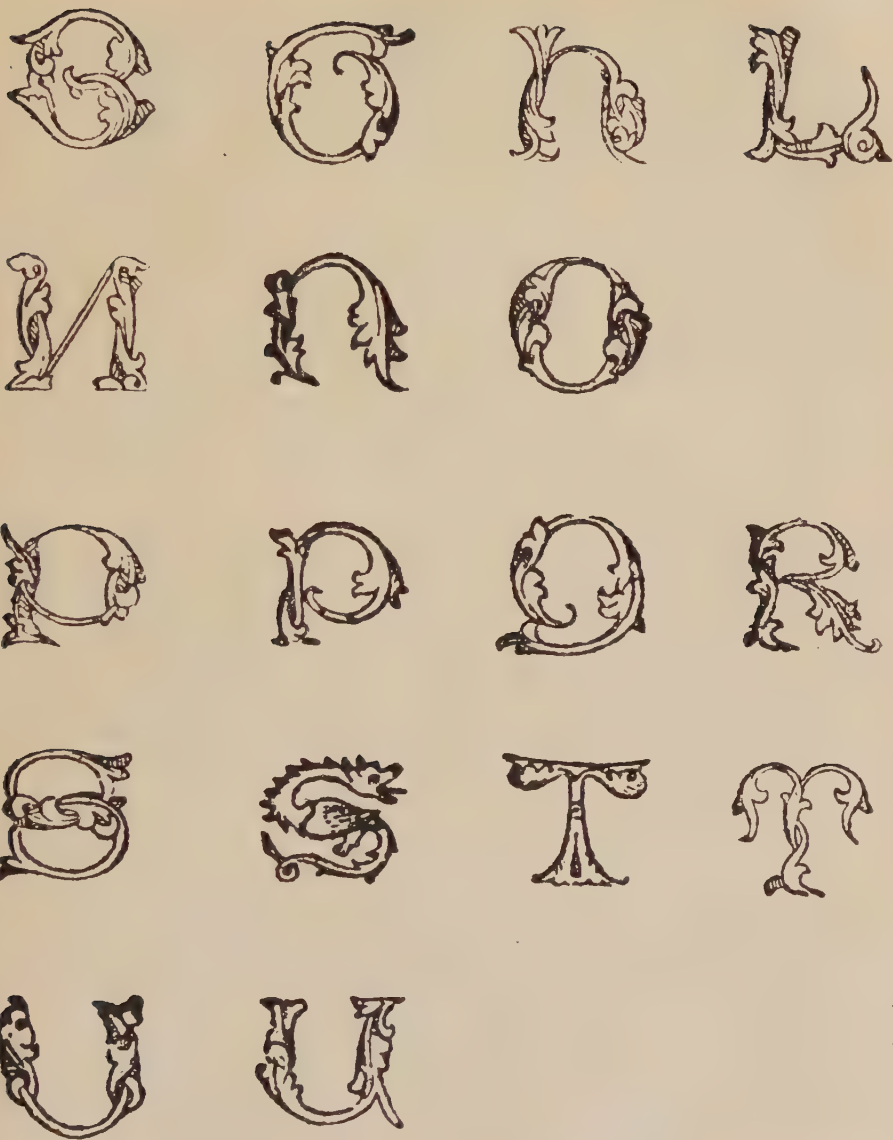 S G h L
N n O
P P Q R
S S T T
U U